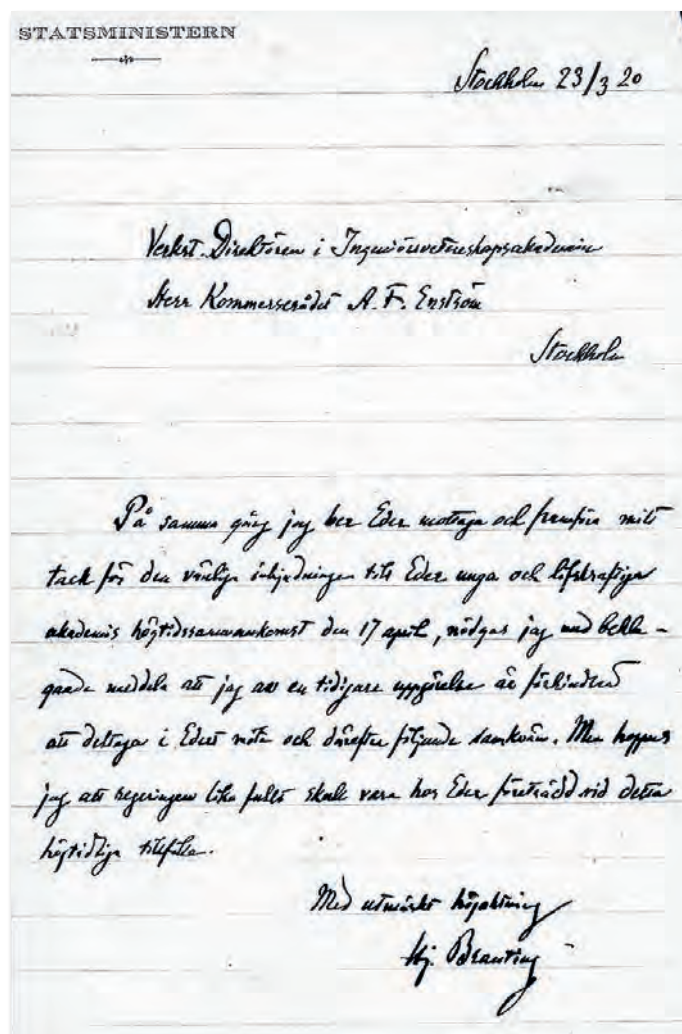 STATSMINISTERN
Stockholm 23/3 20
Verkst. Direktören i Ingeniörsvetenskapsakademien
Herr Kommersrådet A. F. Enström
Stockholm
På samma gång jag ber Eder mottaga och framföra mitt
tack för den vänliga inbjudningen till Eder unga och lifskraftiga
akademis högtidssammankomst den 17 april, nödgas jag med bekla-
gande meddela att jag av en tidigare uppgörelse är förhindrad
att deltaga i Edert möte och därefter följande samkväm. Men hoppas
jag att regeringen lika fullt skall vara hos Eder företrädd vid detta
högtidliga tillfälle.
Med utmärkt högaktning
Hj. Branting